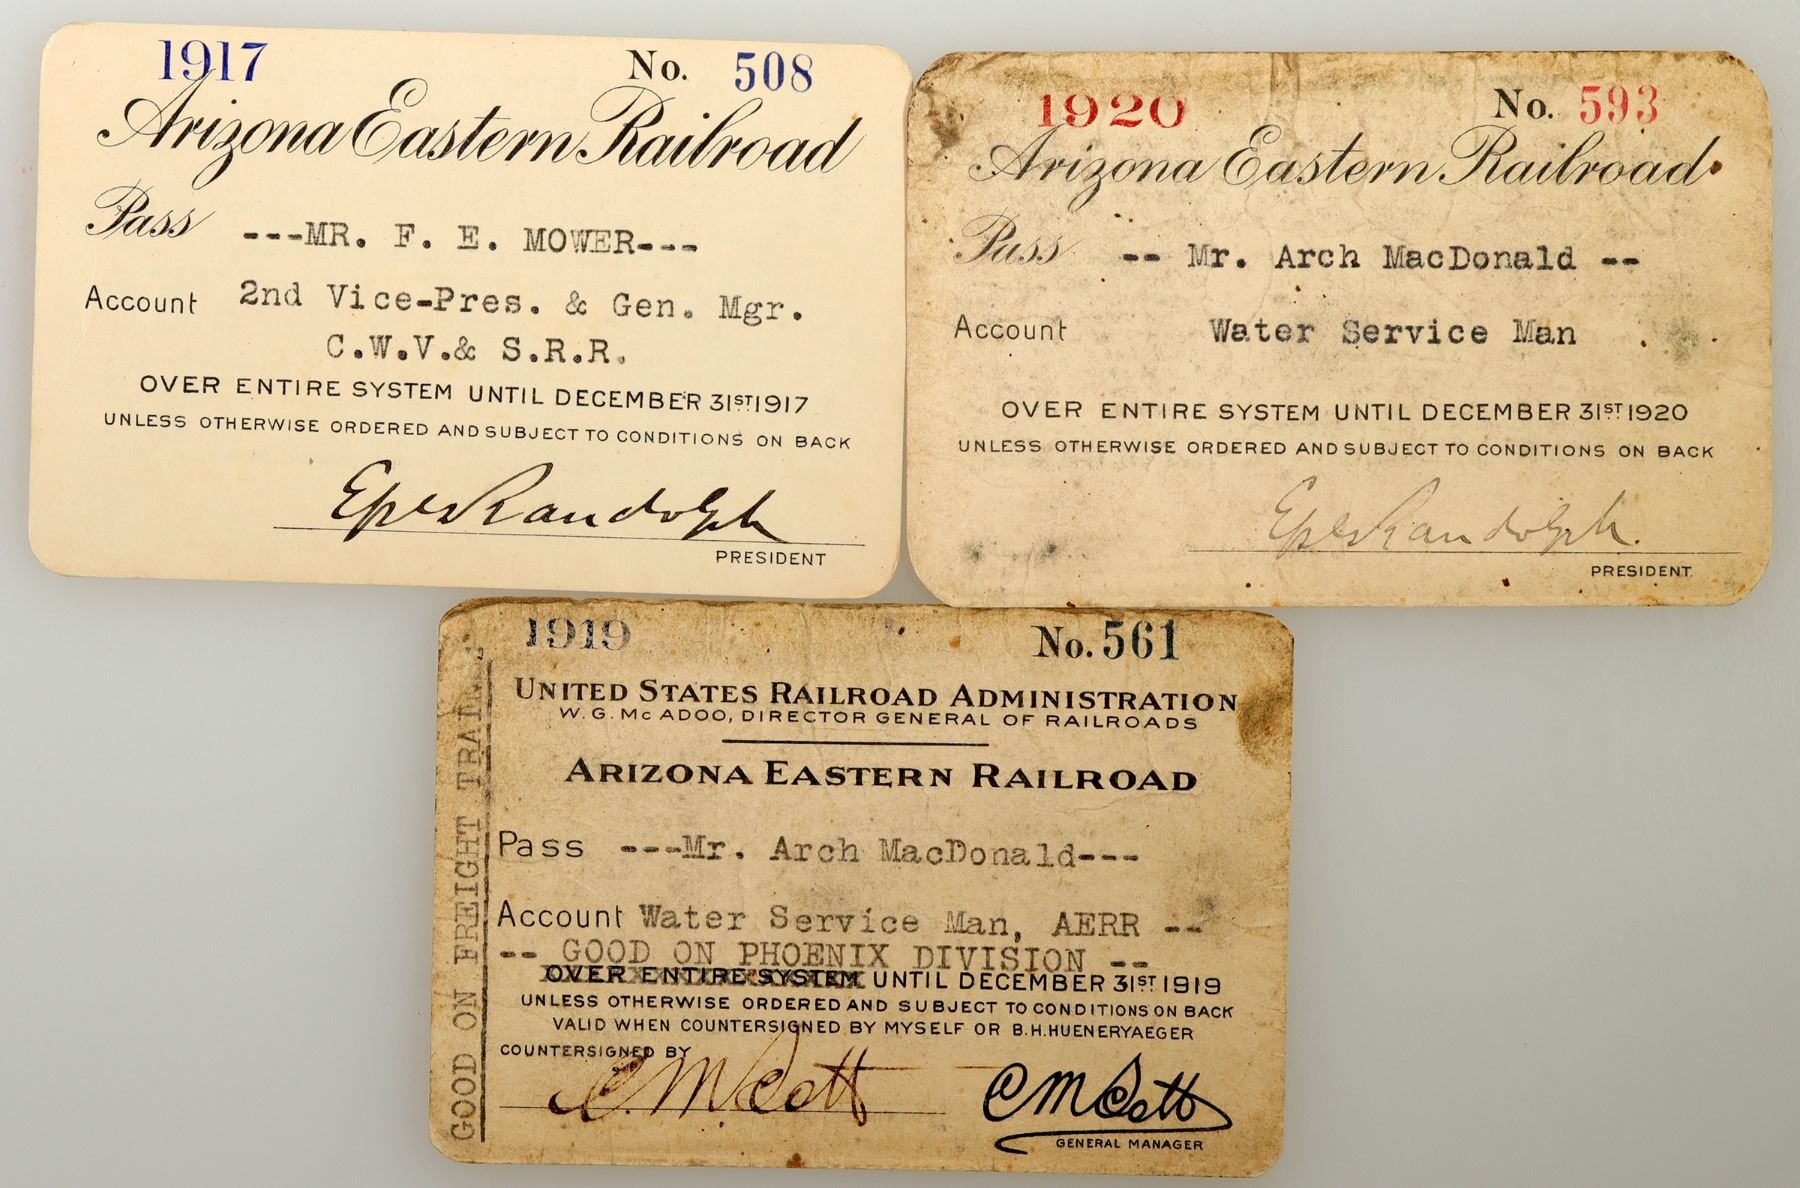 1917 No. 508
Arizona Eastern Railroad
Pass ---MR. F. E. MOWER---
Account 2nd Vice-Pres. & Gen. Mgr.
C.W.V.& S.R.R.
OVER ENTIRE SYSTEM UNTIL DECEMBER 31ST 1917
UNLESS OTHERWISE ORDERED AND SUBJECT TO CONDITIONS ON BACK
Epes Randolph
PRESIDENT
1920 No. 593
Arizona Eastern Railroad
Pass -- Mr. Arch MacDonald --
Account Water Service Man
OVER ENTIRE SYSTEM UNTIL DECEMBER 31ST 1920
UNLESS OTHERWISE ORDERED AND SUBJECT TO CONDITIONS ON BACK
Epes Randolph.
PRESIDENT.
GOOD ON FREIGHT TRAINS
1919 No. 561
UNITED STATES RAILROAD ADMINISTRATION
W. G. McADOO, DIRECTOR GENERAL OF RAILROADS
ARIZONA EASTERN RAILROAD
Pass ---Mr. Arch MacDonald---
Account Water Service Man, AERR --
-- GOOD ON PHOENIX DIVISION --
OVER ENTIRE SYSTEM UNTIL DECEMBER 31ST 1919
UNLESS OTHERWISE ORDERED AND SUBJECT TO CONDITIONS ON BACK
VALID WHEN COUNTERSIGNED BY MYSELF OR B.H.HUENERYAEGER
COUNTERSIGNED BY
C. M. Scott C M Scott
GENERAL MANAGER